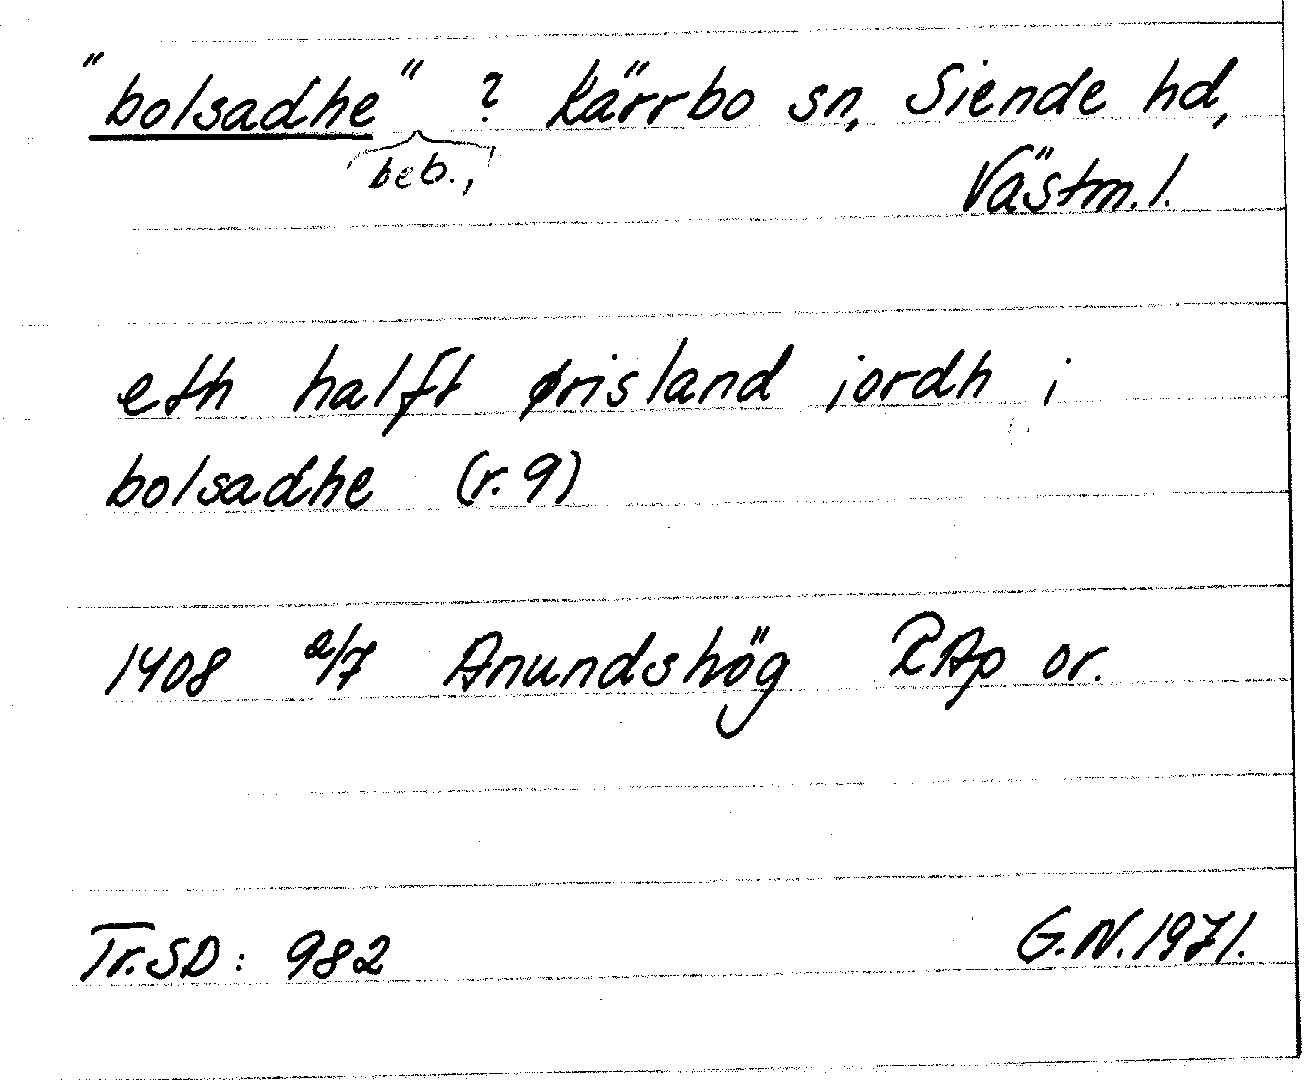 "bolsadhe" ? Kärrbo sn, Siende hd,
beb.,
Västm. l.
eth halft ørisland iordh i
bolsadhe (r. 9)
1408 2/7 Anundshög RAp or.
Tr. SD: 982
G.N. 1971.